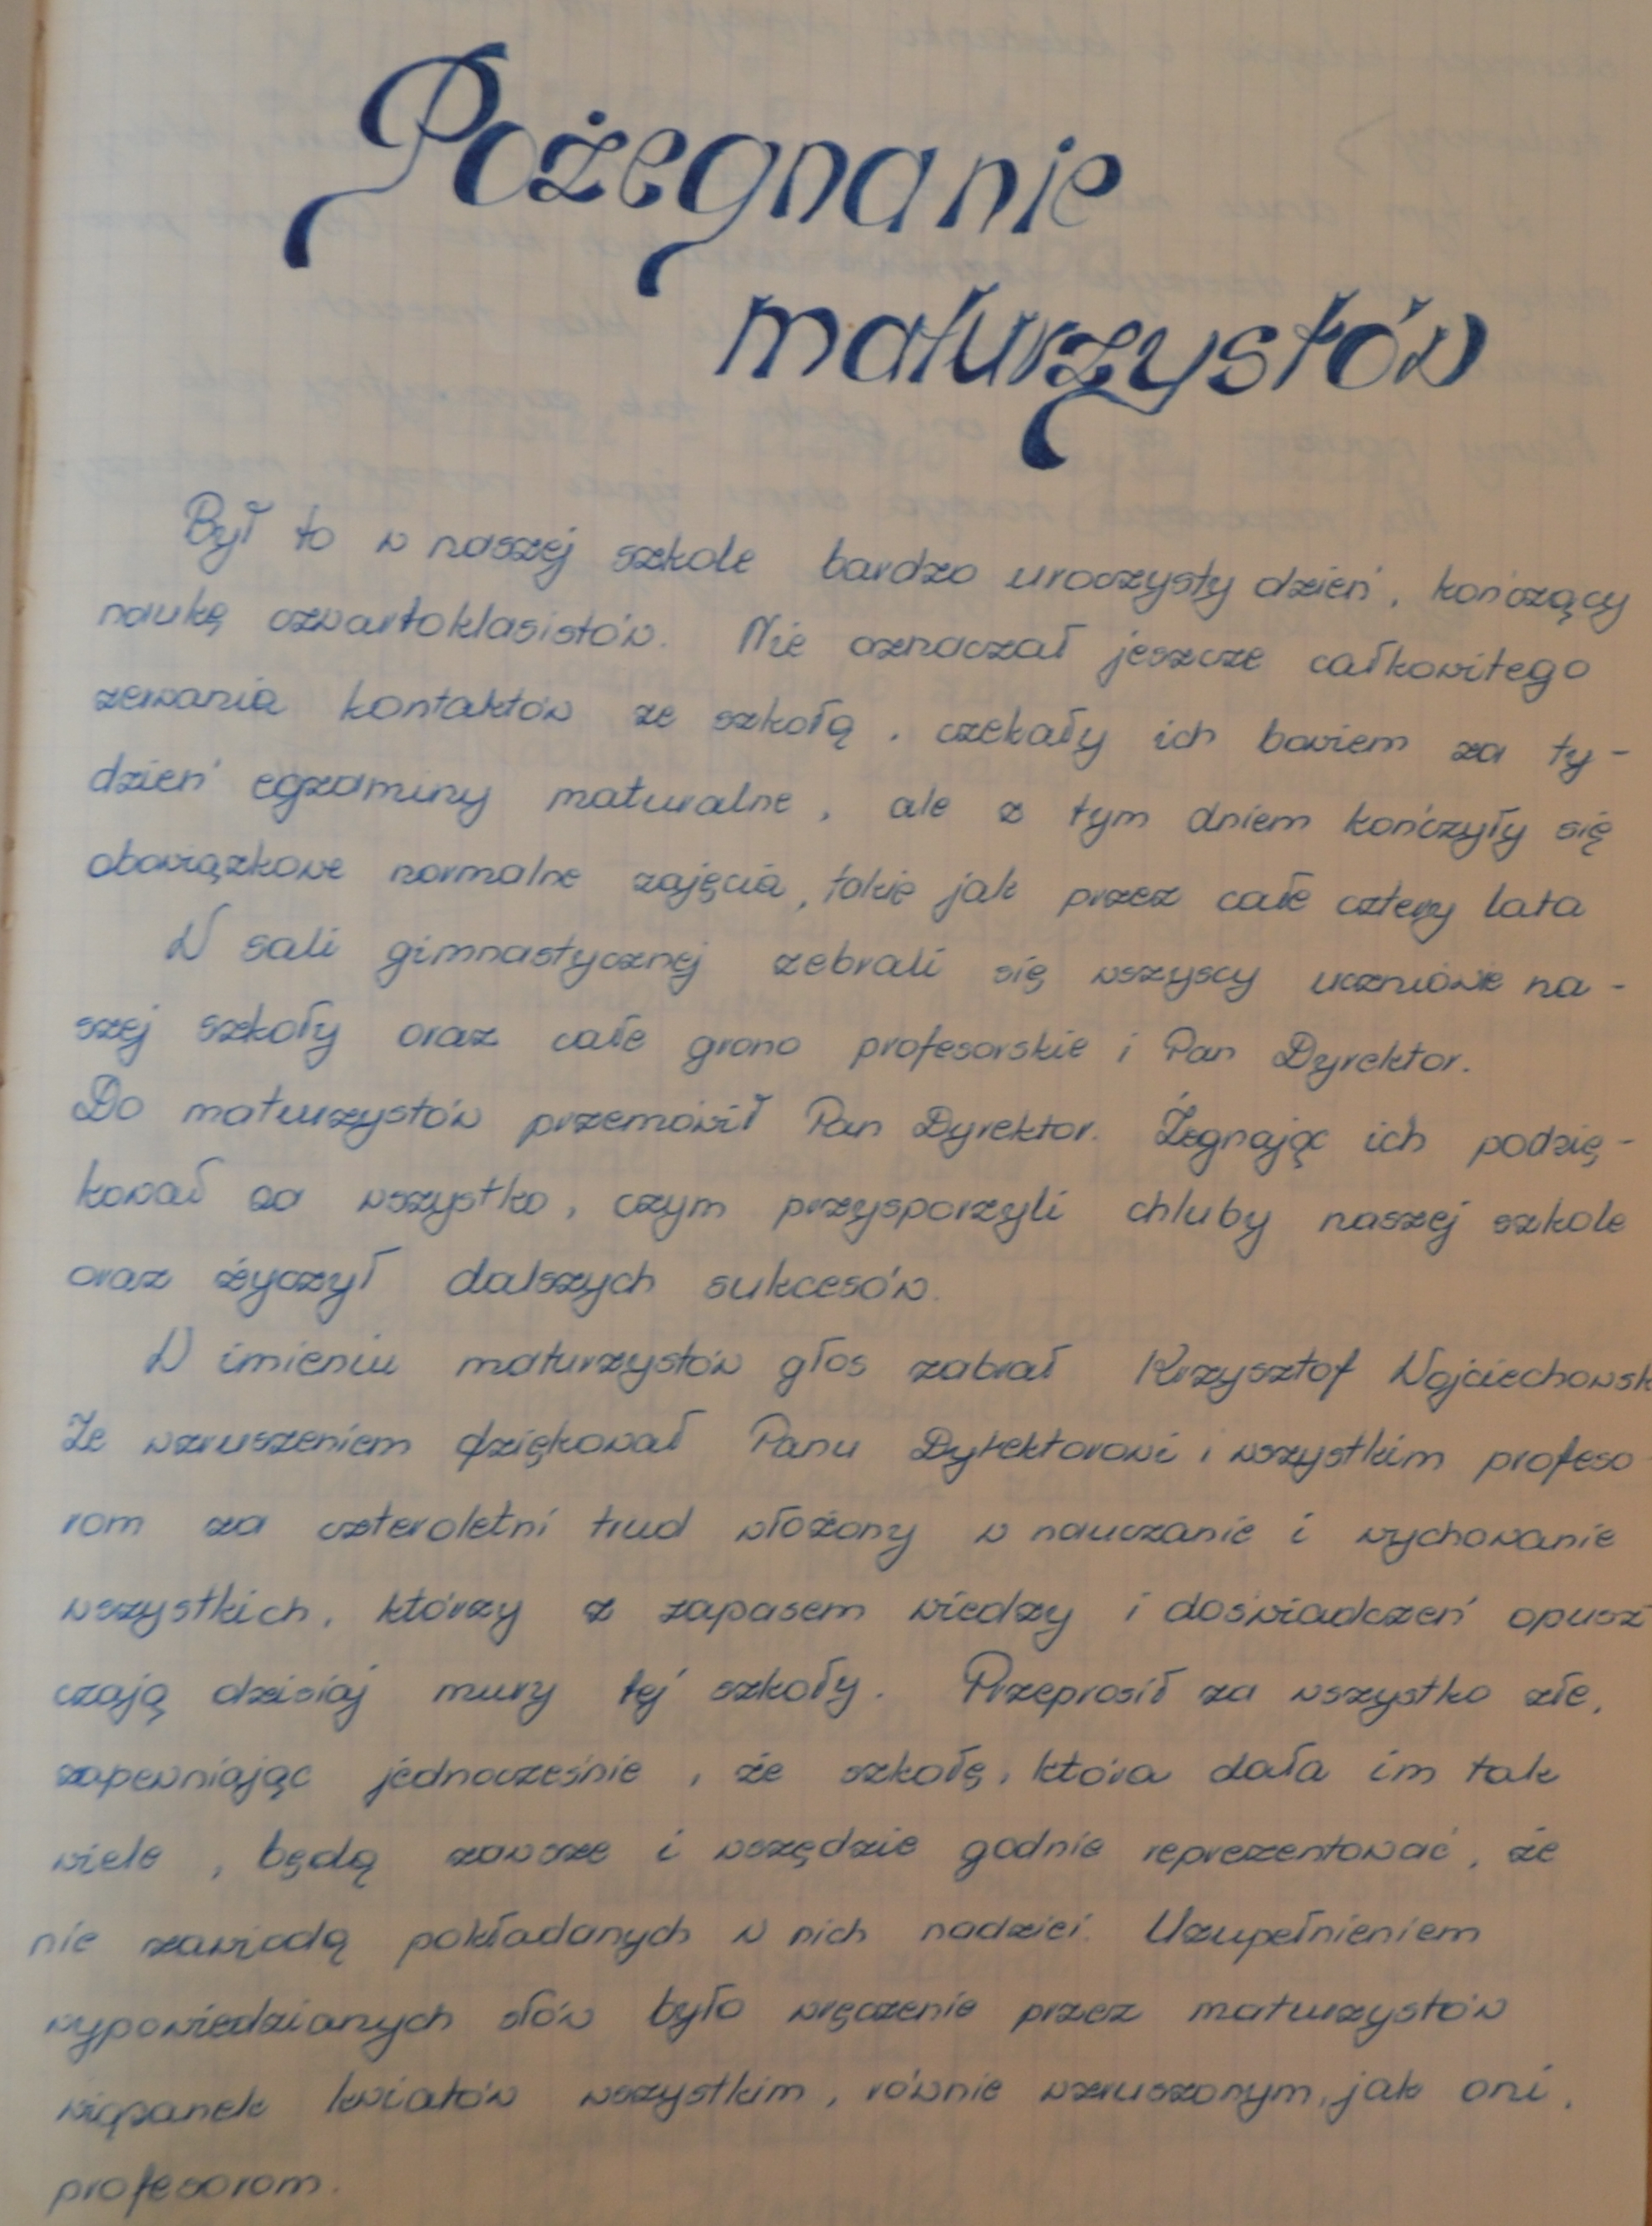 Pożegnanie
maturzystów
Był to w naszej szkole bardzo uroczysty dzień, kończący
naukę czwartoklasistów. Nie oznaczał jeszcze całkowitego
zerwania kontaktów ze szkołą, czekały ich bowiem za ty-
dzień egzaminy maturalne, ale z tym dniem kończyły się
obowiązkowe normalne zajęcia, takie jak przez całe cztery lata
W sali gimnastycznej zebrali się wszyscy uczniowie na-
szej szkoły oraz całe grono profesorskie i Pan Dyrektor.
Do maturzystów przemówił Pan Dyrektor. Żegnając ich podzię-
kował za wszystko, czym przysporzyli chluby naszej szkole
oraz życzył dalszych sukcesów.
W imieniu maturzystów głos zabrał Krzysztof Wojciechowsk
Ze wzruszeniem dziękował Panu Dyrektorowi i wszystkim profeso-
rom za czteroletni trud włożony w nauczanie i wychowanie
wszystkich, którzy z zapasem wiedzy i doświadczeń opusz-
czają dzisiaj mury tej szkoły. Przeprosił za wszystko złe,
zapewniając jednocześnie, że szkołę, która dała im tak
wiele, będą zawsze i wszędzie godnie reprezentować, że
nie zawiodą pokładanych w nich nadziei. Uzupełnieniem
wypowiedzianych słów było wręczenie przez maturzystów
wiązanek kwiatów wszystkim, równie wzruszonym, jak oni,
profesorom.